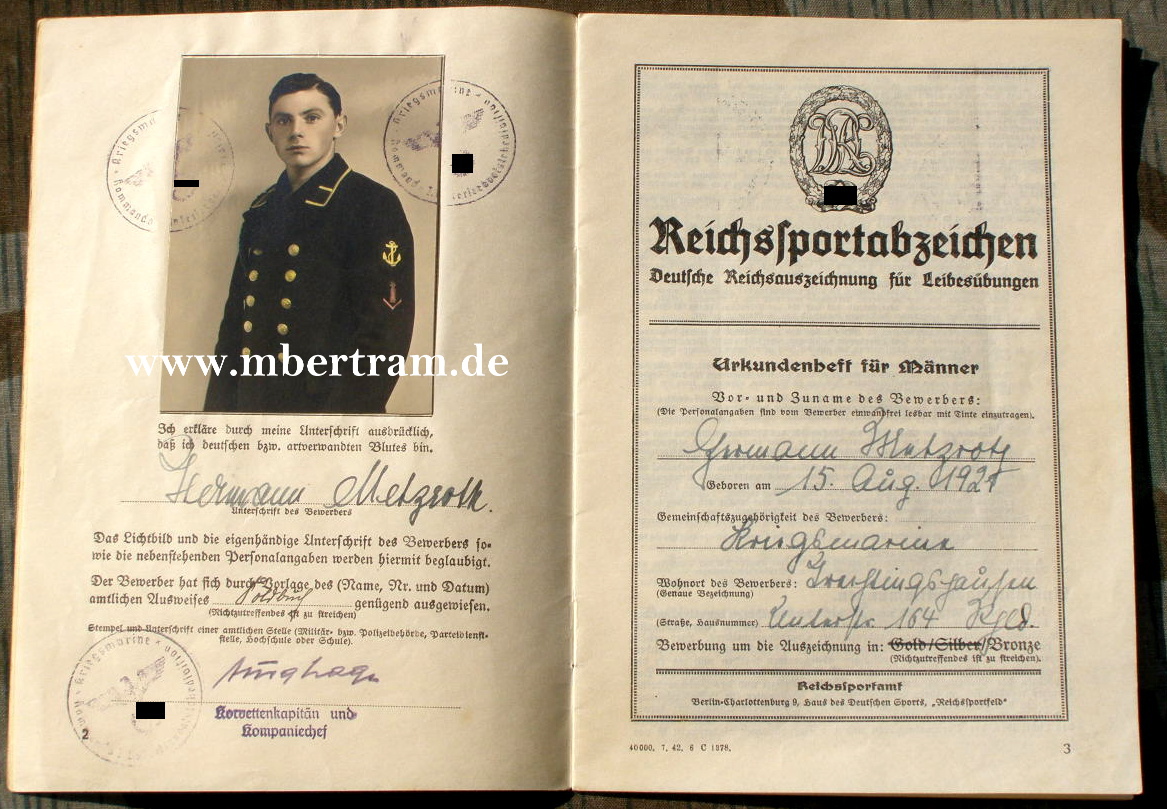 www.mbertram.de
Ich erkläre durch meine Unterschrift ausdrücklich,
daß ich deutschen bzw. artverwandten Blutes bin.
Hermann Metzroth.
Unterschrift des Bewerbers
Das Lichtbild und die eigenhändige Unterschrift des Bewerbers so-
wie die nebenstehenden Personalangaben werden hiermit beglaubigt.
Der Bewerber hat sich durch Vorlage des (Name, Nr. und Datum)
amtlichen Ausweises Soldbuch genügend ausgewiesen.
(Nichtzutreffendes ist zu streichen)
Stempel und Unterschrift einer amtlichen Stelle (Militär- bzw. Polizeibehörde, Parteidienst-
stelle, Hochschule oder Schule)
Kriegsmarine
Korvettenkapitän und
Kompaniechef
2
Reichssportabzeichen
Deutsche Reichsauszeichnung für Leibesübungen
Urkundenheft für Männer
Vor- und Zuname des Bewerbers:
(Die Personalangaben sind vom Bewerber einwandfrei lesbar mit Tinte einzutragen).
Hermann Metzroth
Geboren am 15. Aug. 1921
Gemeinschaftszugehörigkeit des Bewerbers:
Kriegsmarine
Wohnort des Bewerbers: Trechtingshausen
(Genaue Bezeichnung)
(Straße, Hausnummer) Unterstr. 164
Bewerbung um die Auszeichnung in: Gold/Silber/Bronze
(Nichtzutreffendes ist zu streichen).
Reichssportamt
Berlin-Charlottenburg 9, Haus des Deutschen Sports, „Reichssportfeld“
40000. 7. 42. 6 C 1378.
3